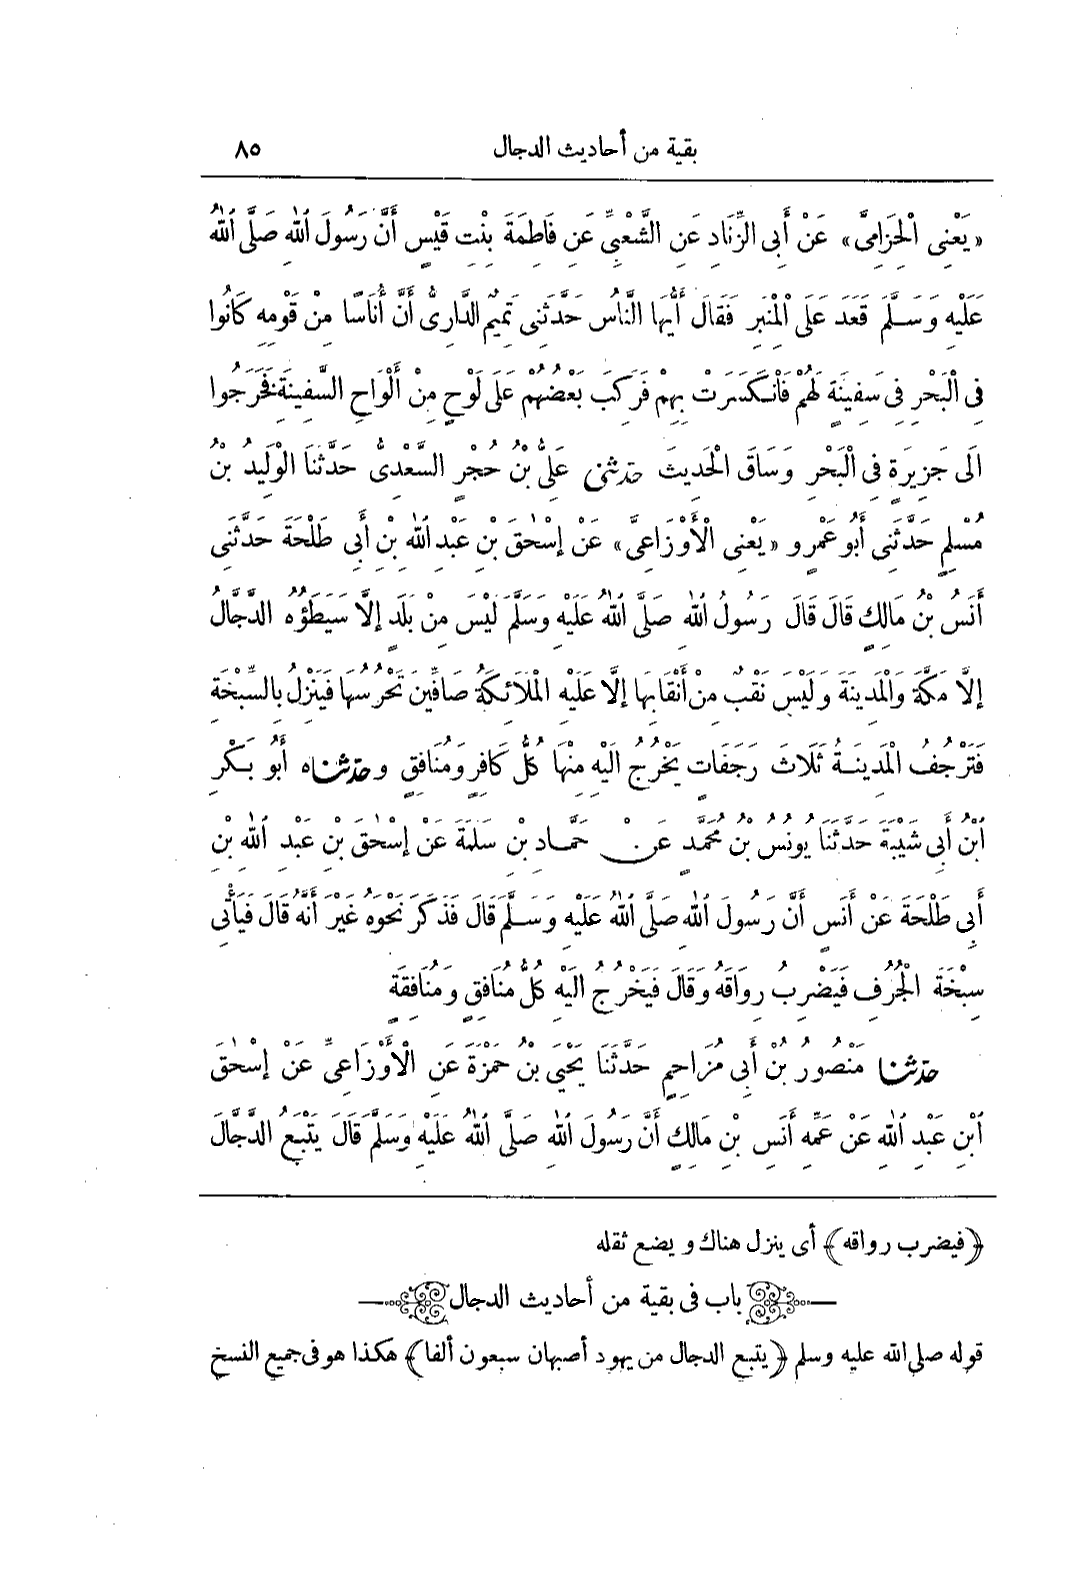 بقية من أحاديث الدجال ٨٥
«يَعْنِى الْحِزَامِىَّ» عَنْ أَبِى الزِّنَادِ عَنِ الشَّعْبِىِّ عَنْ فَاطِمَةَ بِنْتِ قَيْسٍ أَنَّ رَسُولَ اللهِ صَلَّى اللهُ
عَلَيْهِ وَسَلَّمَ قَعَدَ عَلَى الْمِنْبَرِ فَقَالَ أَيُّهَا النَّاسُ حَدَّثَنِى تَمِيمٌ الدَّارِىُّ أَنَّ أُنَاسًا مِنْ قَوْمِهِ كَانُوا
فِى الْبَحْرِ فِى سَفِينَةٍ لَهُمْ فَانْكَسَرَتْ بِهِمْ فَرَكِبَ بَعْضُهُمْ عَلَى لَوْحٍ مِنْ أَلْوَاحِ السَّفِينَةِ فَخَرَجُوا
الَى جَزِيرَةٍ فِى الْبَحْرِ وَسَاقَ الْحَدِيثَ حدثنى عَلِىُّ بْنُ حُجْرٍ السَّعْدِىُّ حَدَّثَنَا الْوَلِيدُ بْنُ
مُسْلِمٍ حَدَّثَنِى أَبُو عَمْرٍو «يَعْنِى الْأَوْزَاعِىَّ» عَنْ إِسْحٰقَ بْنِ عَبْدِ اللهِ بْنِ أَبِى طَلْحَةَ حَدَّثَنِى
أَنَسُ بْنُ مَالِكٍ قَالَ قَالَ رَسُولُ اللهِ صَلَّى اللهُ عَلَيْهِ وَسَلَّمَ لَيْسَ مِنْ بَلَدٍ إِلَّا سَيَطَؤُهُ الدَّجَّالُ
إِلَّا مَكَّةَ وَالْمَدِينَةَ وَلَيْسَ نَقْبٌ مِنْ أَنْقَابِهَا إِلَّا عَلَيْهِ الْمَلَائِكَةُ صَافِّينَ تَحْرُسُهَا فَيَنْزِلُ بِالسِّبْخَةِ
فَتَرْجُفُ الْمَدِينَةُ ثَلَاثَ رَجَفَاتٍ يَخْرُجُ الَيْهِ مِنْهَا كُلُّ كَافِرٍ وَمُنَافِقٍ وحدثناه أَبُو بَكْرِ
ابْنُ أَبِى شَيْبَةَ حَدَّثَنَا يُونُسُ بْنُ مُحَمَّدٍ عَنْ حَمَّادِ بْنِ سَلَمَةَ عَنْ إِسْحٰقَ بْنِ عَبْدِ اللهِ بْنِ
أَبِى طَلْحَةَ عَنْ أَنَسٍ أَنَّ رَسُولَ اللهِ صَلَّى اللهُ عَلَيْهِ وَسَلَّمَ قَالَ فَذَكَرَ نَحْوَهُ غَيْرَ أَنَّهُ قَالَ فَيَأْتِى
سِبْخَةَ الْجُرُفِ فَيَضْرِبُ رِوَاقَهُ وَقَالَ فَيَخْرُجُ الَيْهِ كُلُّ مُنَافِقٍ وَمُنَافِقَةٍ
حدثنا مَنْصُورُ بْنُ أَبِى مُزَاحِمٍ حَدَّثَنَا يَحْيَى بْنُ حَمْزَةَ عَنِ الْأَوْزَاعِىِّ عَنْ إِسْحٰقَ
ابْنِ عَبْدِ اللهِ عَنْ عَمِّهِ أَنَسِ بْنِ مَالِكٍ أَنَّ رَسُولَ اللهِ صَلَّى اللهُ عَلَيْهِ وَسَلَّمَ قَالَ يَتْبَعُ الدَّجَّالَ
﴿فيضرب رواقه﴾ أى ينزل هناك ويضع ثقله
باب فى بقية من أحاديث الدجال
قوله صلى الله عليه وسلم ﴿يتبع الدجال من يهود أصبهان سبعون ألفا﴾ هكذا هو فى جميع النسخ